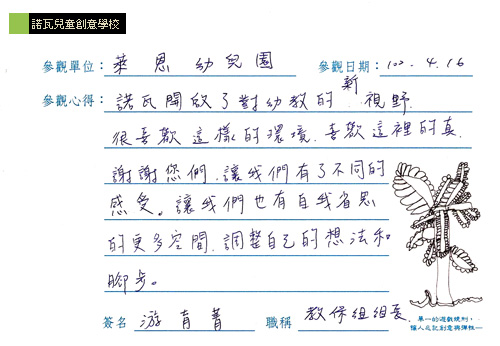 諾瓦兒童創意學校
參觀單位：萊恩幼兒園 參觀日期：100.4.16
參觀心得：諾瓦開啟了對幼教的新視野.
很喜歡這樣的環境.喜歡這裡的真.
謝謝您們.讓我們有了不同的
感受。讓我們也有自我省思
的更多空間.調整自己的想法和
腳步。
單一的遊戲規則，
讓人忘記創意與彈性—
簽名 游育菁 職稱 教保組組長